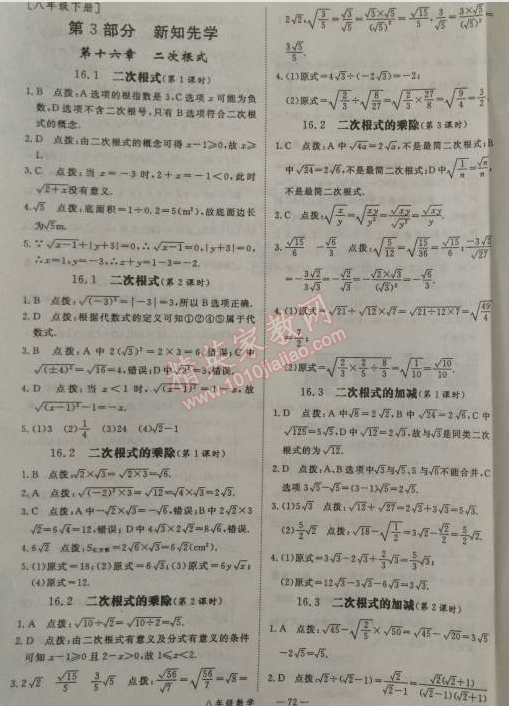 [八年级下册]
第3部分 新知先学
第十六章 二次根式
16.1 二次根式(第1课时)
1.B 点拨:A选项的根指数是3,C选项x可能为负
数,D选项不含二次根号,只有B选项符合二次根
式的概念.
2.D 点拨:由二次根式的概念可得x-1≥0,故x≥
1.
3.C 点拨:当x=-3时,2+x=-1<0,此时
√(2+x)没有意义.
4.√5 点拨:底面积=1÷0.2=5(m²),故底面边长
为√5m.
5.∵√(x-1)+|y+3|=0,∴√(x-1)=0,|y+3|=0,
∴x=1,y=-3,∴x+y=1-3=-2.
16.1 二次根式(第2课时)
1.B 点拨:√(-3)²=|-3|=3,所以B选项正确.
2.D 点拨:根据代数式的定义可知①②④⑤属于代
数式.
3.B 点拨:A中2(√3)²=2×3=6,错误;C中
√(±4)²=√16=4,错误;D中
4.D 点拨:当x<1时,√(x-1)²=1-x,故
√(x-1)²-1=-x.
5.(1)3 (2)1/4 (3)24 (4)√2-1
16.2 二次根式的乘除(第1课时)
1.B 点拨:√2×√3=√(2×3)=√6.
2.A 点拨:√((-2)²×3)=√12=√4×√3=2√3.
3.C 点拨:A中-√2×√3=-√6,错误;B中2√2×3
√2=6√4=12,错误;D中4√3×2√2=8√6,错误.
4.6√2 点拨:=2√6×√3=6√2(cm²).
5.(1)原式=18;(2)原式=6√3;(3)原式=6y√x;
(4)原式=12.
16.2 二次根式的乘除(第2课时)
1.A 点拨:√10÷√2=√(10÷2)=√5.
2.D 点拨:由二次根式有意义及分式有意义的条件
可知x-1≥0且2-x>0,故1≤x<2.
3.2√2 √15/5 3/5√5 点拨:√56/√7=√(56/7)=√8=
2√2,√(3/5)=√3/√5=(√3×√5)/(√5)²=√15/5,3/√5=(3×√5)/(√5)²=
3√5/5.
4.(1)原式=4√3÷(-2√3)=-2;
(2)原式=√(2/3)÷√(8/27)=√(2/3×27/8)=√(9/4)=3/2.
16.2 二次根式的乘除(第3课时)
1.C 点拨:A中√4a=2√a,不是最简二次根式;B
中√24=2√6,不是最简二次根式;D中√(1/n)=√n/n,
不是最简二次根式.
2.C 点拨:√(x/y)=√(xy/y²)=√xy/√y²=√xy/y.
3.√15/6 -√6/3 点拨:√(5/12)=√(15/36)=√15/6,-3√2/√27
=-3√2/3√3=-√2/√3=-(√2×√3)/(√3)²=-√6/3.
4.(1)原式=√21÷√12×√7=√(21÷12×7)=√(49/4)
=7/2;
(2)原式=√(2/3×2/3÷8/3)=√(1/10)=√10/10.
16.3 二次根式的加减(第1课时)
1.D 点拨:A中√8=2√2,B中√24=2√6,C中
√125=5√5,D中√12=2√3,故与√3是同类二次
根式的为√12.
2.D 点拨:A、B选项中√3与√5、5与√6不能合并,C
选项3√5-√5=(3-1)√5=2√5.
3.(1)5√3 点拨:√12+√27=2√3+3√3=5√3.
(2)5/2√2 点拨:√18-√(1/2)=3√2-√2/2=5/2√2.
4.(1)原式=3√3-2√3+2/3√3=5/3√3;
(2)原式=12√3-3√3-6√3=3√3.
16.3 二次根式的加减(第2课时)
1.A 点拨:√45-√(2/5)×√50=√45-√20=3√5
-2√5=√5.
2.D 点拨:√2÷(√2-1)=√2/(√2-1)=√2(√2+1)/(√2-1)(√2+1)
八年级数学
—72—
精英家教网
www.1010jiajiao.com